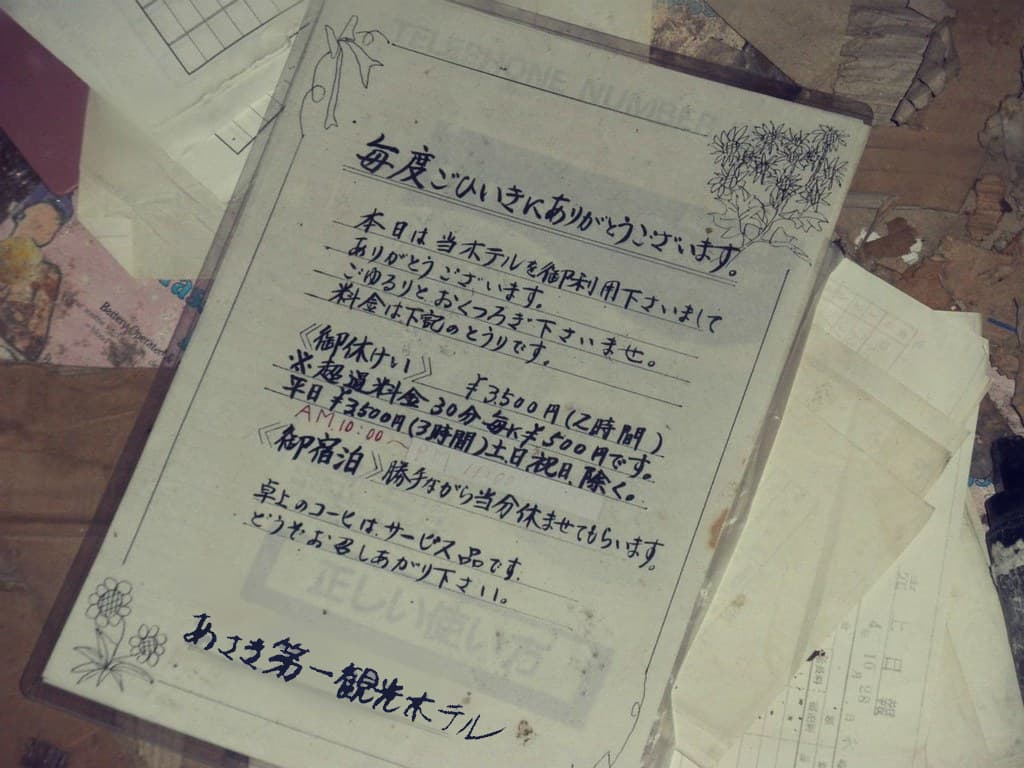 TELEPHONE NUMBER
毎度ごひいきにありがとうございます。
本日は当ホテルを御利用下さいまして
ありがとうございます。
ごゆるりとおくつろぎ下さいませ。
料金は下記のとうりです。
《御休けい》 ¥3,500円(2時間)
※超過料金30分毎に¥500円です。
平日¥3,500円(3時間)土日祝日除く。
AM10:00～
《御宿泊》勝手ながら当分休ませてもらいます。
卓上のコーヒはサービス品です。
どうぞお召しあがり下さい。
正しい使い方
あさき第一観光ホテル
Battery Operated
売上日報
10月28日